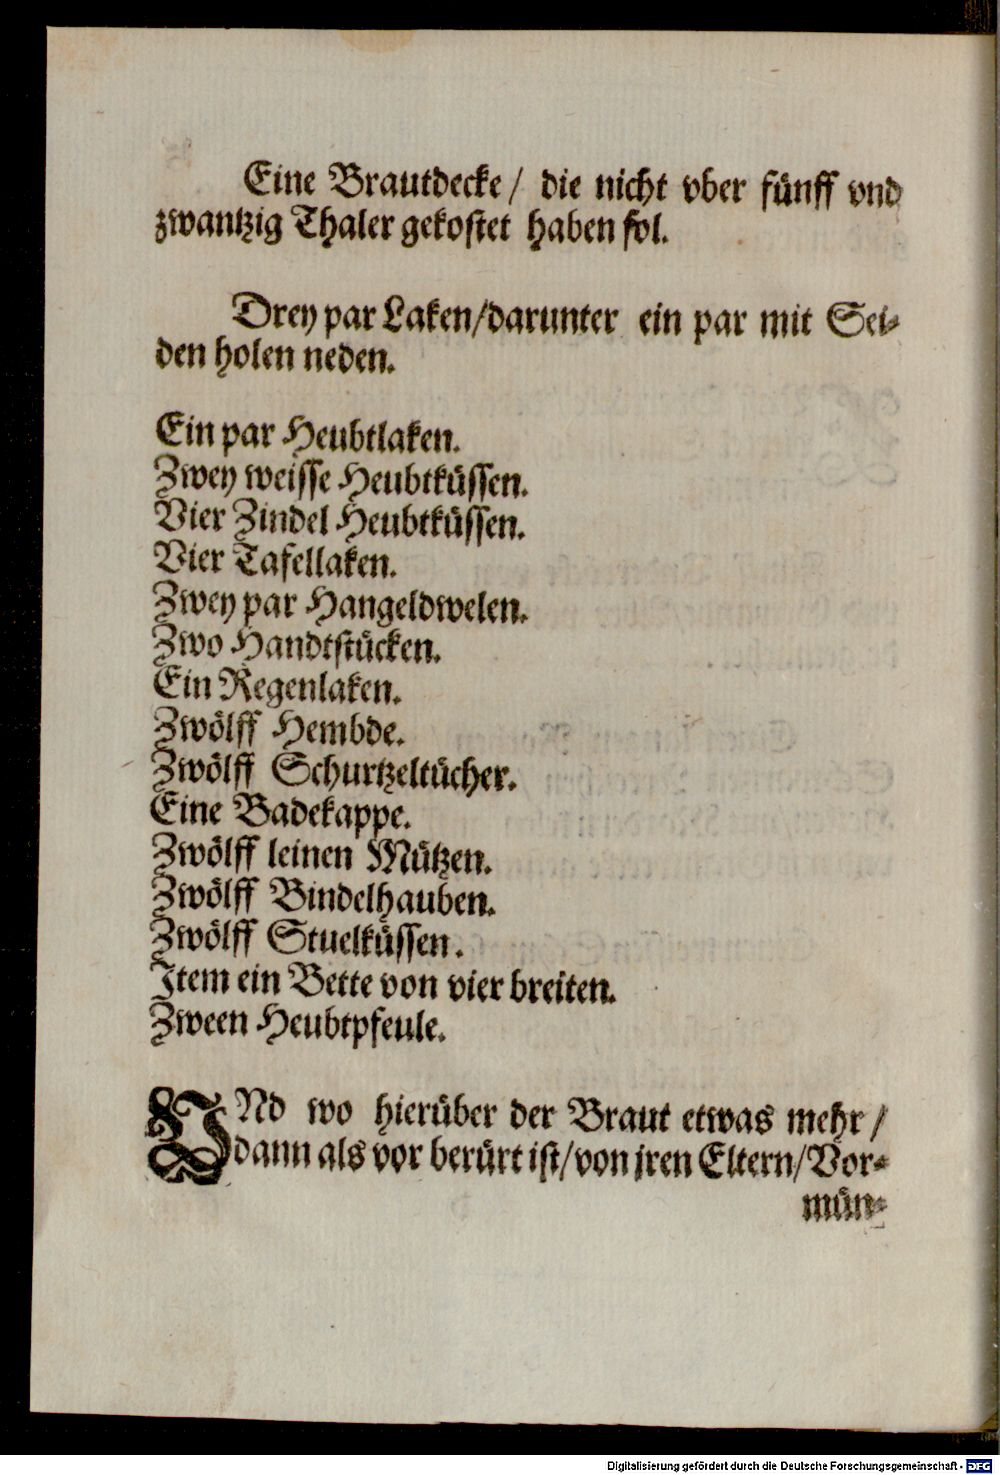 Eine Brautdecke / die nicht vber fünff vnd
zwantzig Thaler gekostet haben sol.
Drey par Laken/darunter ein par mit Sei-
den holen neden.
Ein par Heubtlaken.
Zwey weisse Heubtküssen.
Vier Zindel Heubtküssen.
Vier Tafellaken.
Zwey par Hangeldwelen.
Zwo Handtstücken.
Ein Regenlaken.
Zwölff Hembde.
Zwölff Schurtzeltücher.
Eine Badekappe.
Zwölff leinen Mützen.
Zwölff Bindelhauben.
Zwölff Stuelküssen.
Item ein Bette von vier breiten.
Zween Heubtpfeule.
VNd wo hierüber der Braut etwas mehr /
dann als vor berürt ist/von jren Eltern/Vor-
mün-
Digitalisierung gefördert durch die Deutsche Forschungsgemeinschaft - DFG